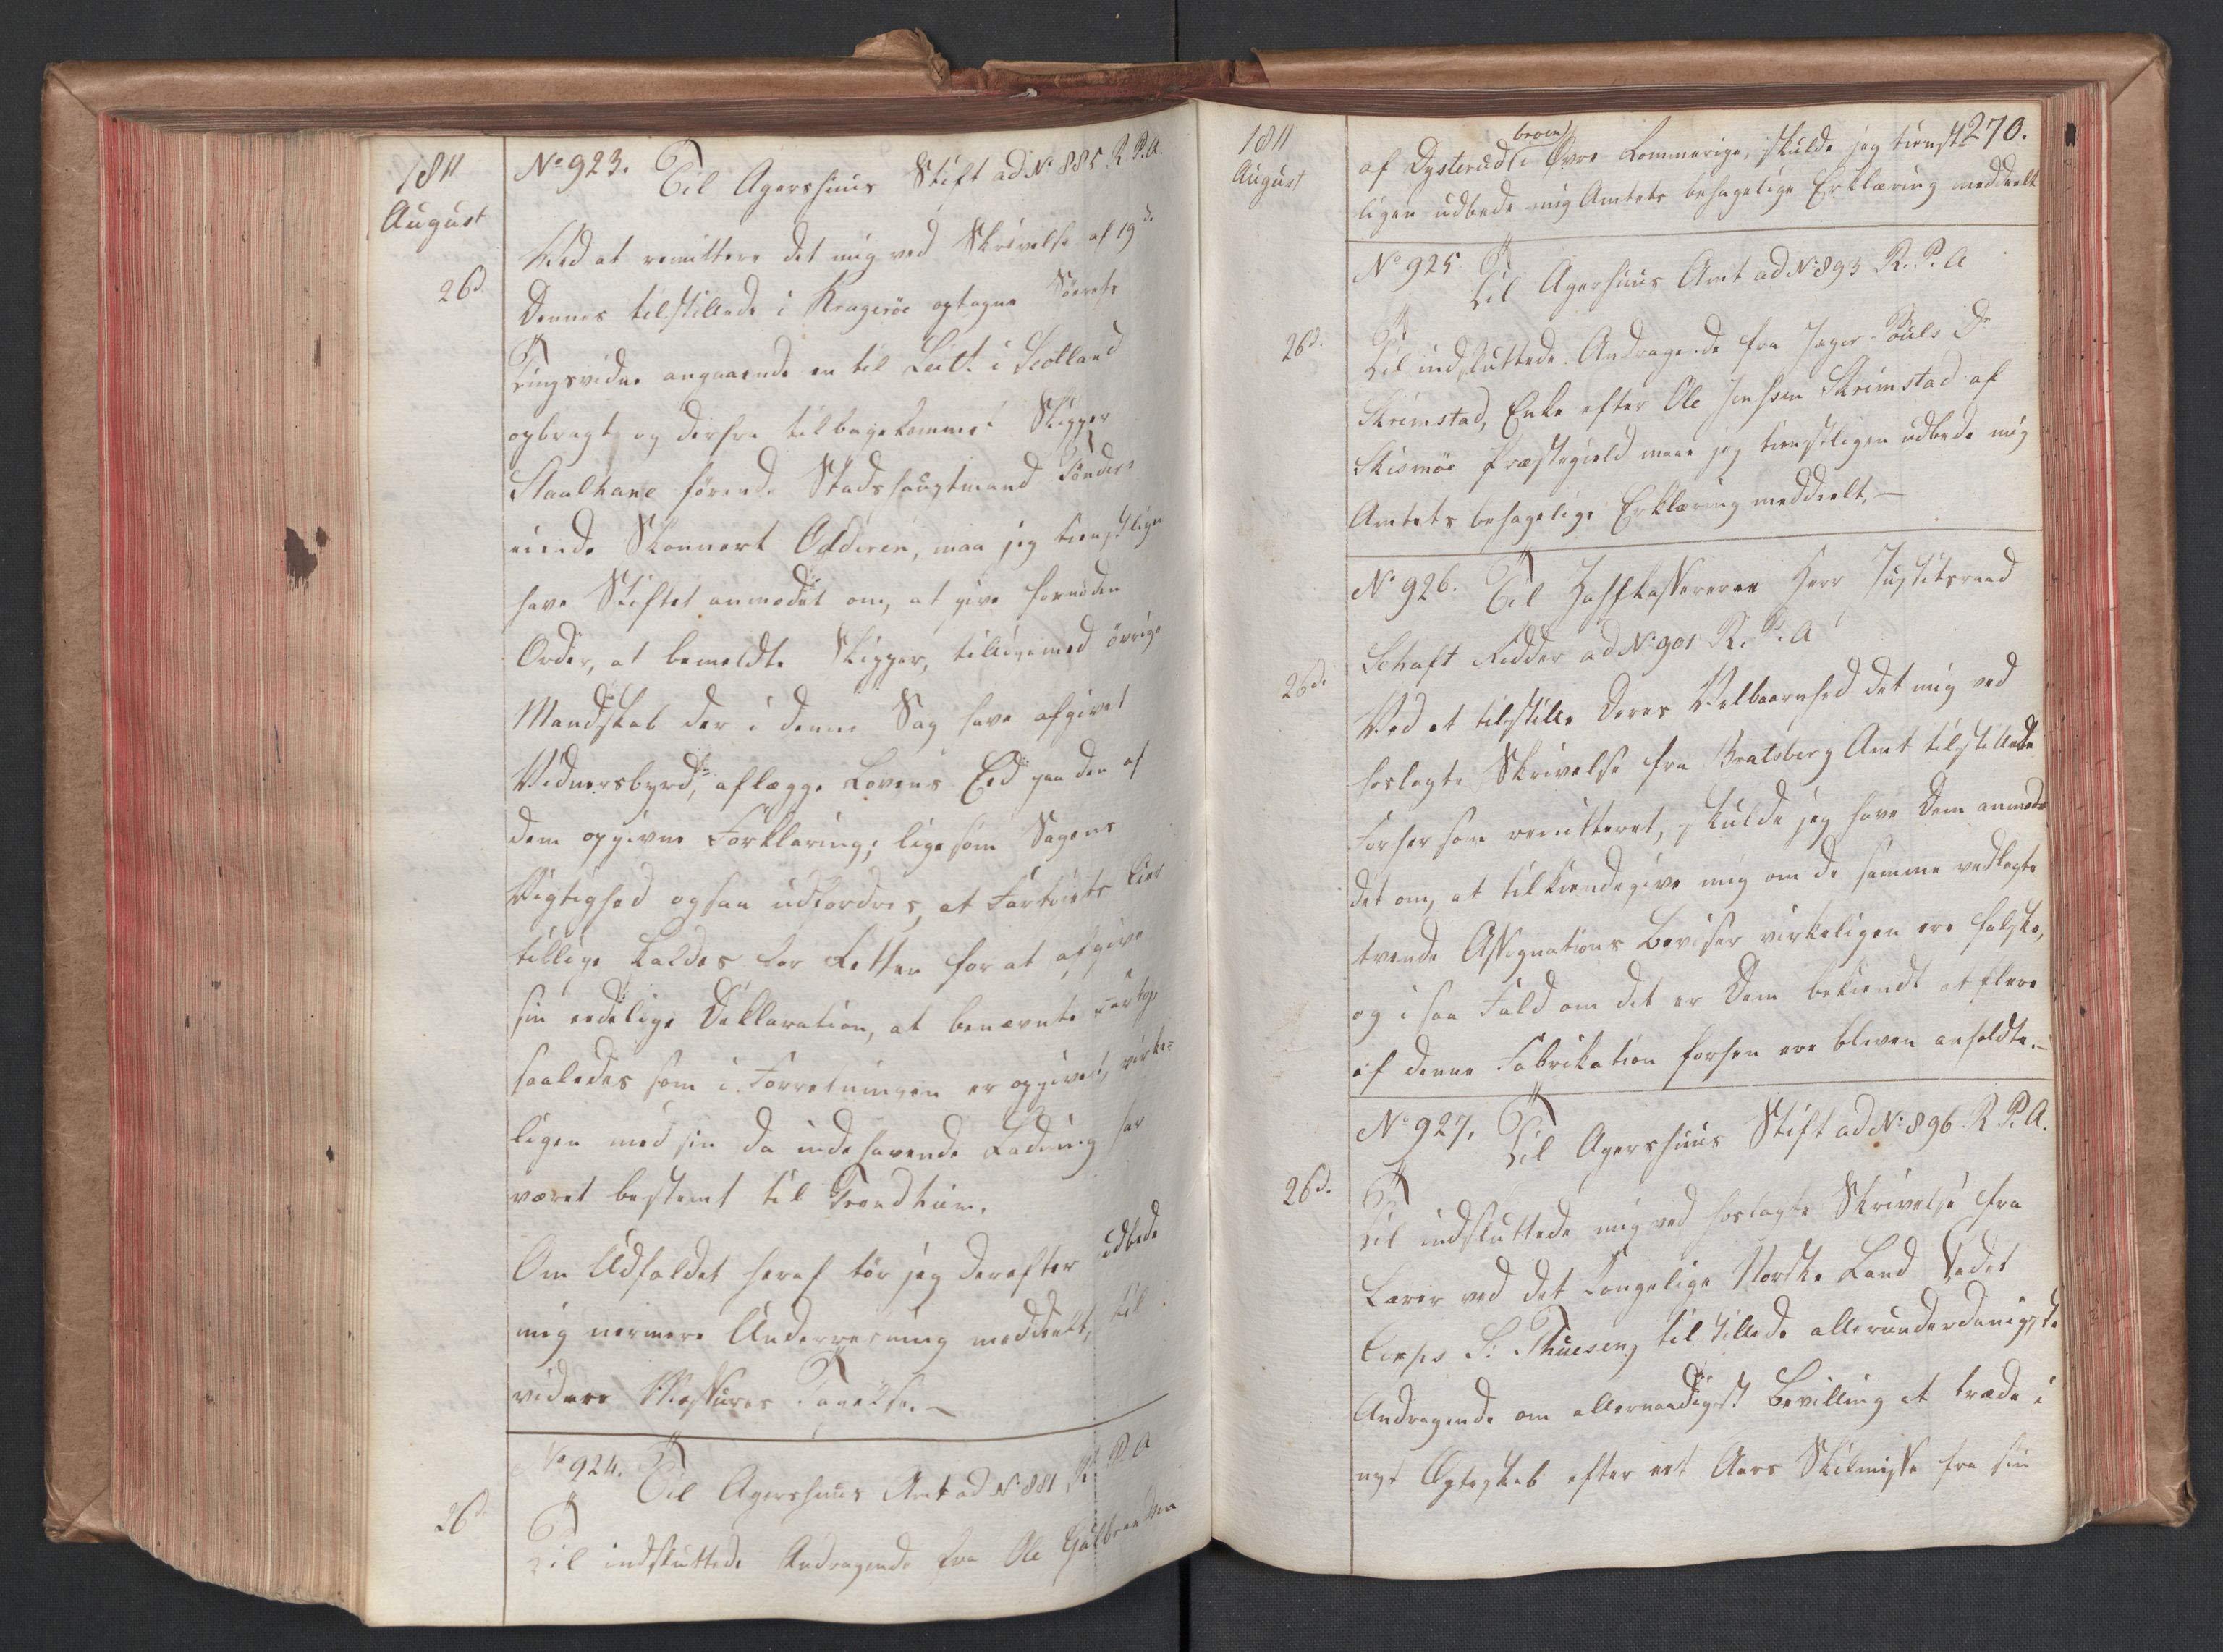 1811
August
No 923. Til Agershuus Stift ad No 885 R. P. A.
26d.
Ved at remittere det mig ved Skrivelse af 19de
Dennes tilstillede i Kragerøe optagne Söerets
Tingsvidne angaaende en til Leith i Scotland
opbragt og derfra tilbagekommet Skipper
Staalhane förende Stadshauptmand
eiende Skonnert Odderen, maa jeg tienstligen
have Stiftet anmodet om, at give fornöden
Order, at bemeldte Skipper, tilligemed övrige
Mandskab der i denne Sag have afgivet
Vidnersbyrd, aflægge Lovens Eed paa den af
dem opgivne Forklaring; ligesom Sagens
Vigtighed ogsaa udfordres, at Fartöiets Eier
tillige kaldes for Retten for at afgive
sin eedelige Deklaration, at benævnte Fartøi
saaledes som i Forretningen er opgivet, virke=
ligen med sin da indehavende Ladning har
været bestemt til Trondhiem.
Om Udfaldet heraf tör jeg derefter udbede
mig nermere Underretning meddeelt, til
videre Tagelse.
No 924. Til Agershuus Amt ad No 881, R. P. A
26d.
Til indsluttede Andragende fra Ole Gulbrandsen
1811
August
270.
af Dysterud i Øvre Rommerige, skulde jeg tienst
ligen udbede mig Amtets behagelige Erklæring meddeelt
No 925 Til Agershuus Amt ad No 893 R. P. A
26d.
Til indsluttede Andragende fra Inger Pouls Dr
Skrimstad, Enke efter Ole Jensen Skrimstad af
Præstegield maae jeg tienstligen udbede mig
Amtets behagelige Erklæring meddeelt.
No 926. Til Herr Justitsraad
Schaft Ridder ad No 901 R. P. A
26d.
Ved at tilstille Deres Velbaarenhed det mig ved
hoslagte Skrivelse fra Bratsberg Amt tilstillede
Forhör som remitteret, skulde jeg have Dem anmo
det om, at tilkiendegive mig om de samme vedlagte
tvende Assignations Beviser virkeligen ere falske,
og i saa Fald om det er Dem bekiendt at flere
af denne Fabrikation forhen ere bleven anholdte.
No 927. Til Agershuus Stift ad No 896 R. P. A.
26d.
Til indsluttede mig ved hoslagte Skrivelse fra
Lærer ved det Kongelige Norske Land Cadet
Corps S: Thuesen, tilstillede allerunderdanigste
Andragende om allernaadigst Bevilling at træde i
nyt Ægteskab efter eet Aars Skilmisse fra sin